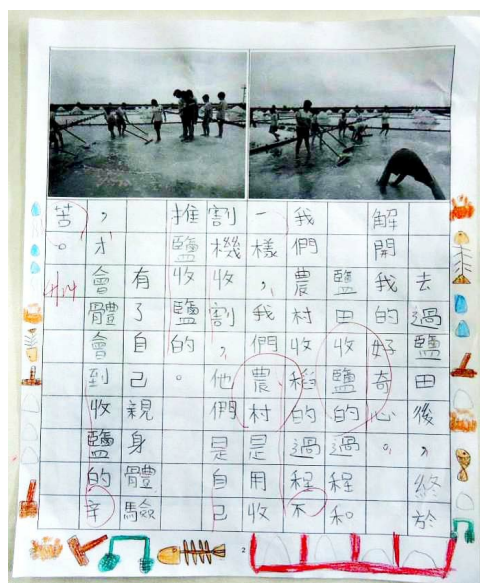 去過鹽田後，終於
解開我的好奇心。
鹽田收鹽的過程和
我們農村收稻的過程不
一樣，我們農村是用收
割機收割，他們是自己
推鹽收鹽的。
有了自己親身體驗
，才會體會到收鹽的辛
苦。
4/14
2